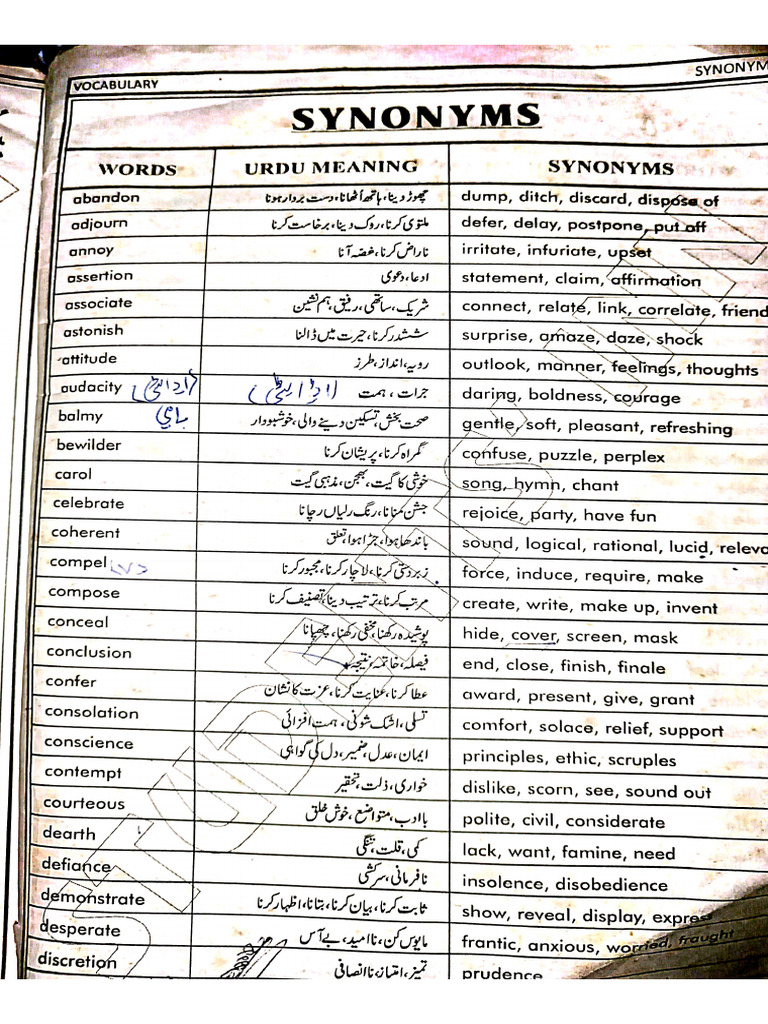 VOCABULARY
SYNONYM
SYNONYMS
WORDS URDU MEANING SYNONYMS
abandon چھوڑ دینا، ہاتھ اٹھانا، دست بردار ہونا dump, ditch, discard, dispose of
adjourn ملتوی کرنا، روک دینا، برخاست کرنا defer, delay, postpone, put off
annoy ناراض کرنا، غصہ آنا irritate, infuriate, upset
assertion ادعا، دعوی statement, claim, affirmation
associate شریک، ساتھی، رفیق، ہم نشین connect, relate, link, correlate, friend
astonish ششدر کرنا، حیرت میں ڈالنا surprise, amaze, daze, shock
attitude رویہ، انداز، طرز outlook, manner, feelings, thoughts
audacity جرات، ہمت daring, boldness, courage
balmy صحت بخش، تسکین دینے والی، خوشبودار gentle, soft, pleasant, refreshing
bewilder گمراہ کرنا، پریشان کرنا confuse, puzzle, perplex
carol خوشی کا گیت، بھجن، مذہبی گیت song, hymn, chant
celebrate جشن منانا، رنگ رلیاں رچانا rejoice, party, have fun
coherent باندھا ہوا، جڑا ہوا، تعلق sound, logical, rational, lucid, releva
compel زبردستی کرنا، لاچار کرنا، مجبور کرنا force, induce, require, make
compose مرتب کرنا، ترتیب دینا، تصنیف کرنا create, write, make up, invent
conceal پوشیدہ رکھنا، مخفی رکھنا، چھپانا hide, cover, screen, mask
conclusion فیصلہ، خاتمہ، نتیجہ end, close, finish, finale
confer عطا کرنا، عنایت کرنا، عزت کا نشان award, present, give, grant
consolation تسلی، اشک شوئی، ہمت افزائی comfort, solace, relief, support
conscience ایمان، عدل، ضمیر، دل کی گواہی principles, ethic, scruples
contempt خواری، ذلت، تحقیر dislike, scorn, see, sound out
courteous باادب، متواضع، خوش خلق polite, civil, considerate
dearth کمی، قلت، تنگی lack, want, famine, need
defiance نافرمانی، سرکشی insolence, disobedience
demonstrate ثابت کرنا، بیان کرنا، بتانا، اظہار کرنا show, reveal, display, expres
desperate مایوس کن، ناامید، بے آس frantic, anxious, worried, fraught
discretion تمیز، امتیاز، ناانصافی prudence